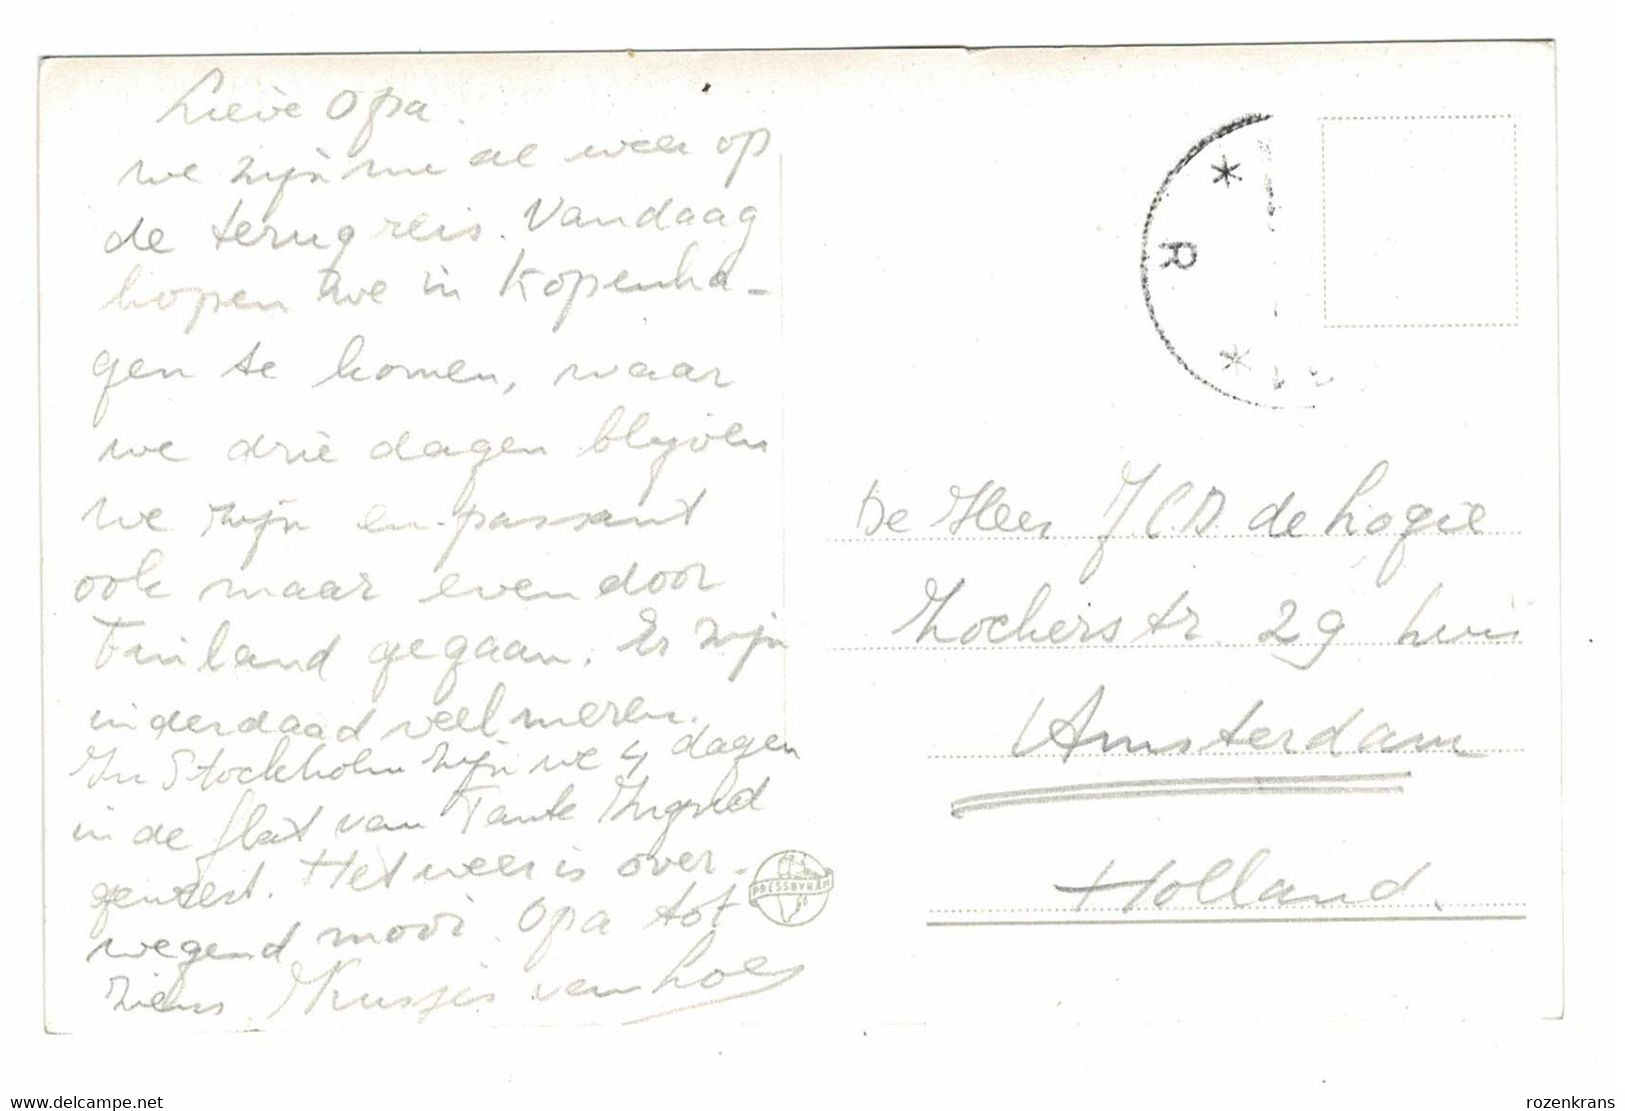 Lieve Opa.
we zijn nu al weer op
de terugreis. Vandaag
hopen we in Kopenha-
gen te komen, waar
we drie dagen blijven
We zijn en-passant
ook maar even door
Finland gegaan. Er zijn
inderdaad veel meren.
In Stockholm zijn we 4 dagen
in de flat van Tante Ingrid
geweest. Het weer is over-
wegend mooi. Opa tot
ziens Kusjes van Loes
PRESSBYRÅN
* R *
De Heer J.C.D. de Logie
Zocherstr. 29 huis
Amsterdam
Holland.
www.delcampe.net
rozenkrans